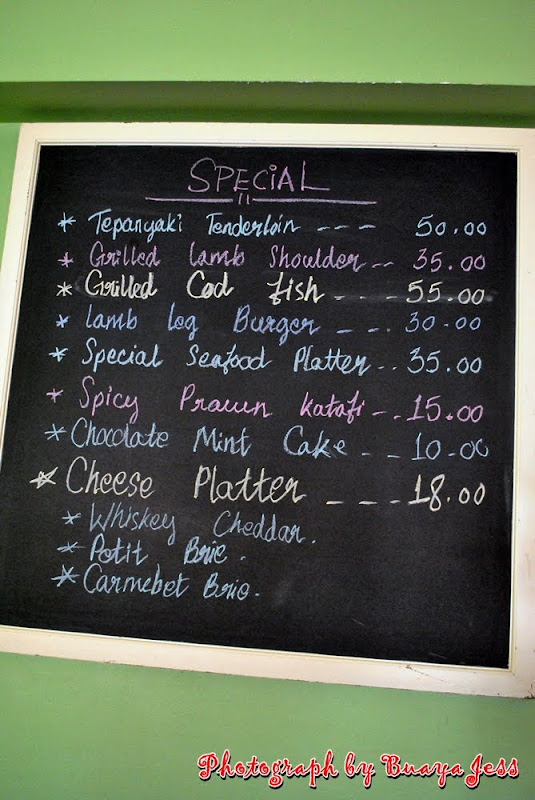 SPECiAL
* Tepanyaki Tenderloin --- 50.00
* Grilled Lamb Shoulder -- 35.00
* Grilled Cod fish ---- 55.00
* Lamb Leg Burger --- 30.00
* Special Seafood Platter -- 35.00
* Spicy Prawn Katafi -- 15.00
* Chocolate Mint Cake -- 10.00
* Cheese Platter --- 18.00
* Whiskey Cheddar.
* Petit Brie.
* Carmebet Brie.
Photograph by BuayaJess